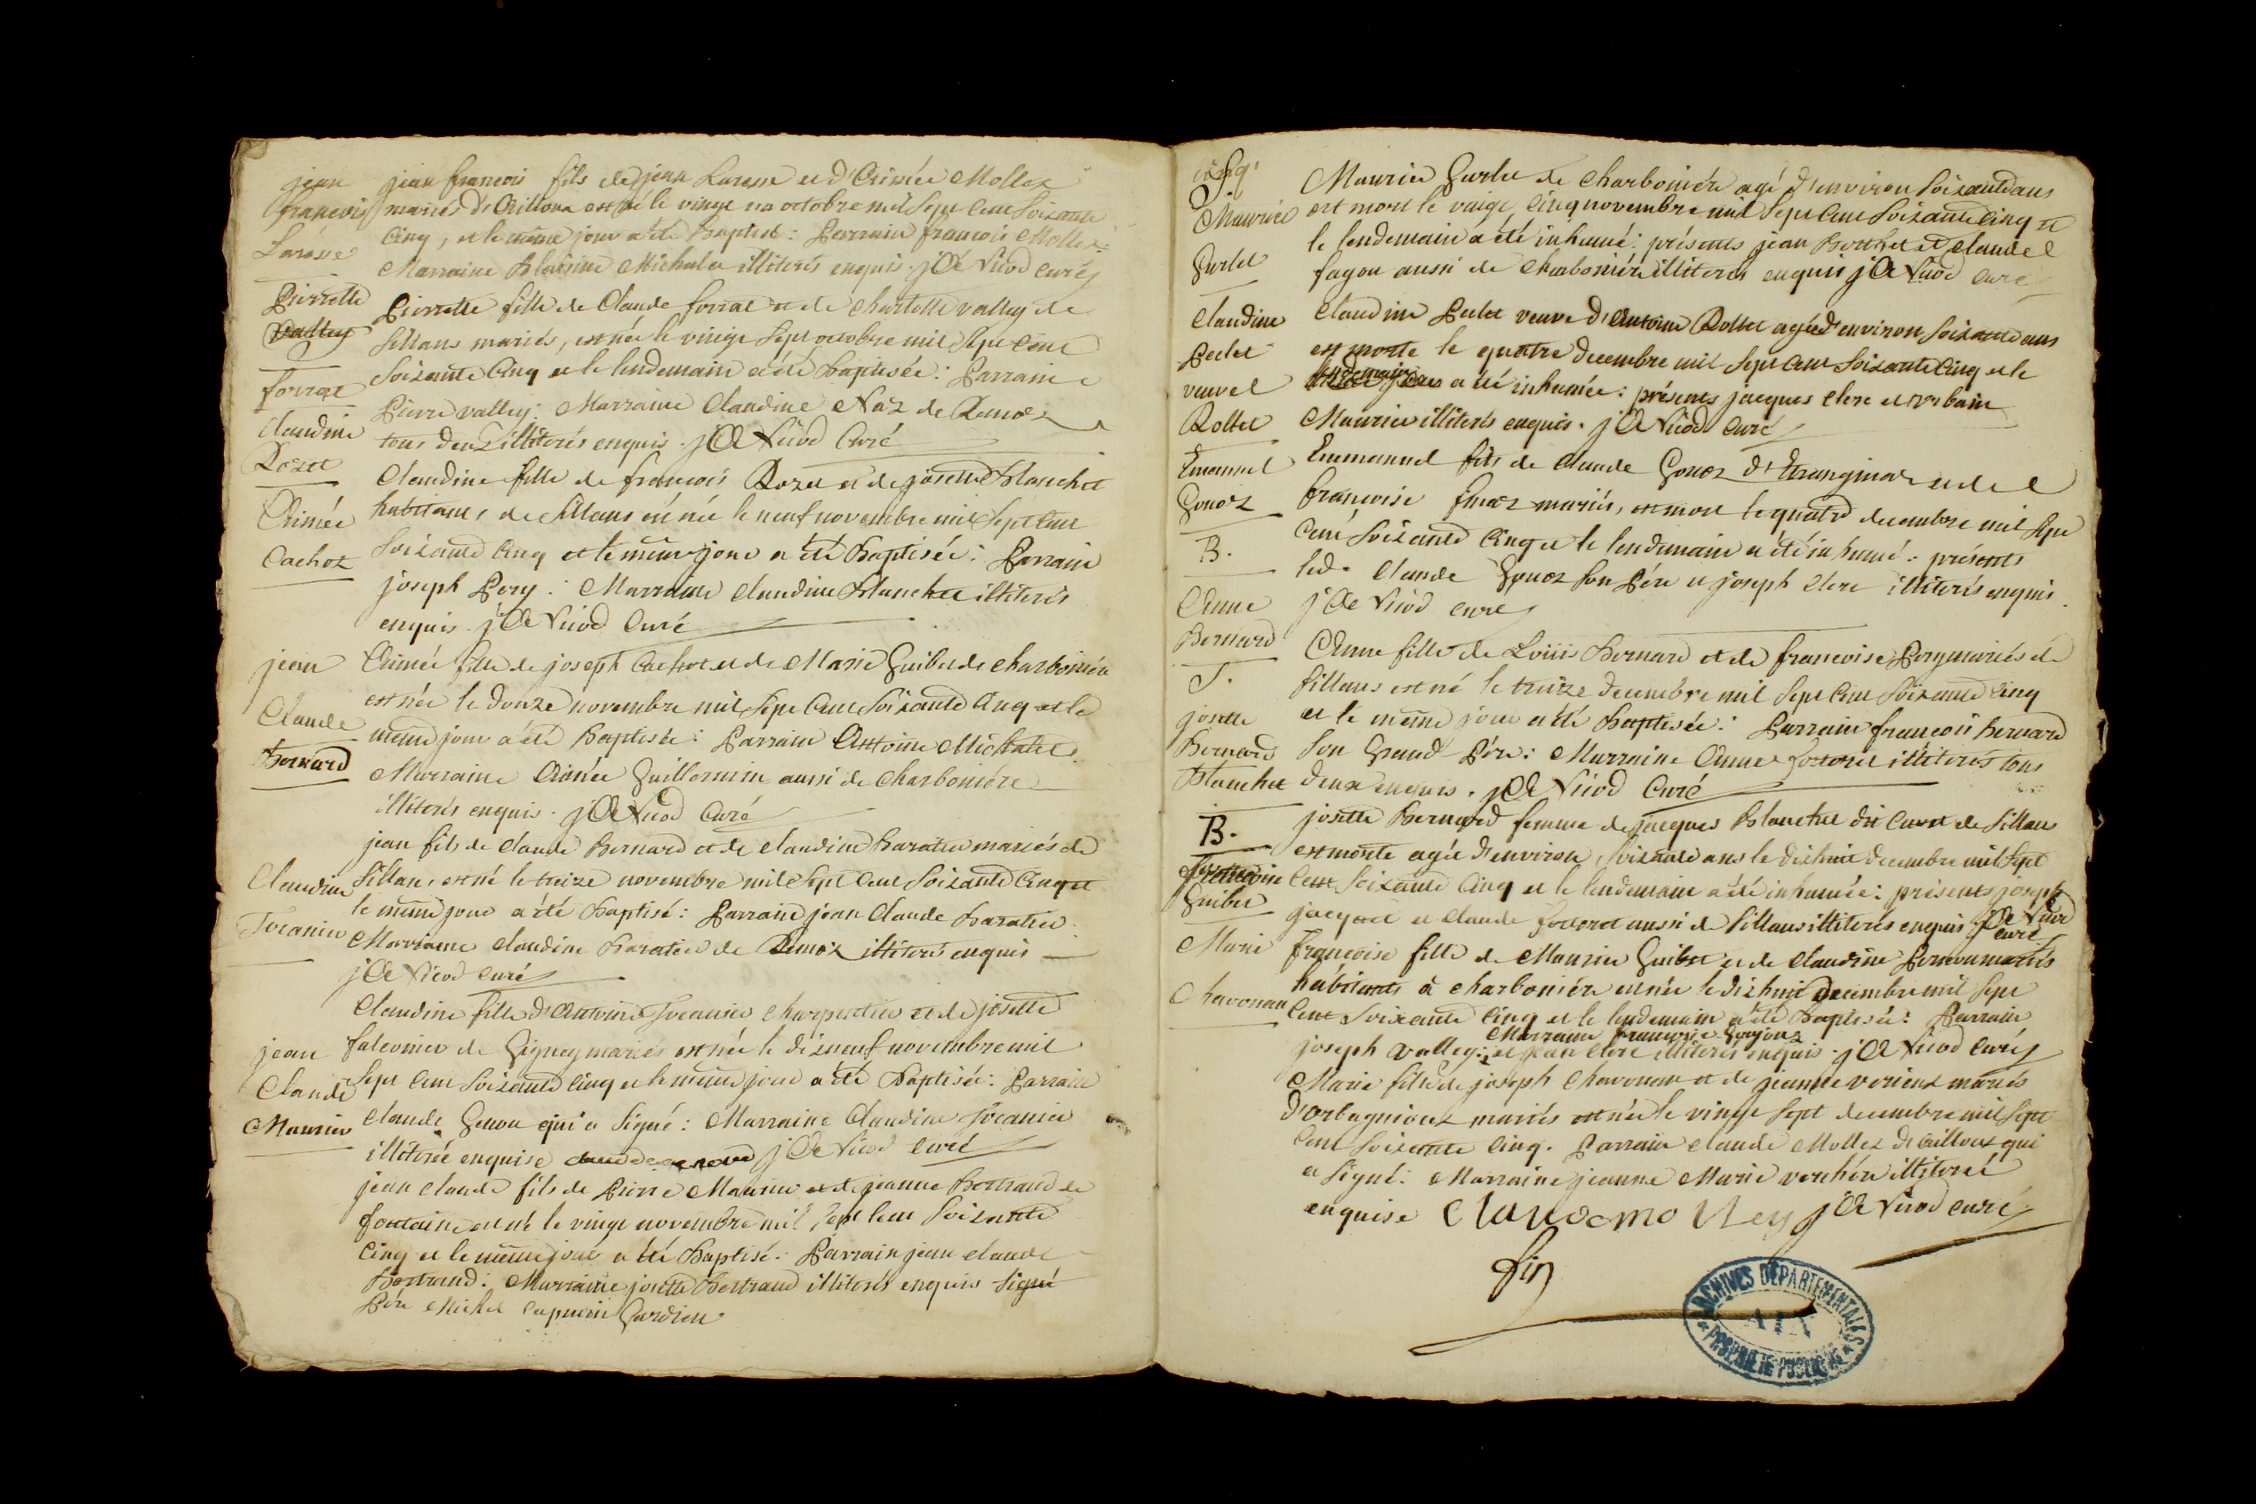 jean
françois
Larasse
jean françois fils de jean Larasse et d'Aimée Mollex
mariés d' est né le vingt octobre mil sept cent soixante
cinq, et le même jour a été baptisé: Parrain françois Mollex:
Marraine Michalet illiterés enquis. j Nicod curé
Pierrette
Valley
forrat
Pierrette fille de Claude forrat et de Charlotte valley de
Sillans mariés, est née le vingt sept octobre mil sept cent
soixante cinq et le lendemain a été baptisée: Parrain
Pierre valley: Marraine Claudine de
tous deux illiterés enquis. j Nicod Curé
Claudine
Rozet
Claudine fille de françois Rozet et de josette Blanchet
habitants de Sillans est née le neuf novembre mil sept cent
soixante cinq et le même jour a été baptisée: Parrain
joseph Pery: Marraine Claudine Blanchet illiterés
enquis. j Nicod Curé
Aimée
Cachot
Aimée fille de joseph Cachot et de Marie Guibet de charboniére
est née le douze novembre mil sept cent soixante cinq et le
même jour a été baptisée: Parrain Antoine Michalet.
Marraine Aimée Guillermin aussi de charboniére
illiterés enquis. j Nicod Curé
jean
Claude
Bernard
jean fils de Claude Bernard et de claudine baratier mariés de
Sillans, est né le treize novembre mil sept cent soixante cinq et
le même jour a été baptisé: Parrain jean Claude baratier
Marraine claudine baratier de illiterés enquis
j Nicod curé
Claudine
Tocanier
Claudine fille d'Antoine Tocanier charpentier et de josette
falconier de Gigney mariés est née le dixneuf novembre mil
sept cent soixante cinq et le même jour a été baptisée: Parrain
claude Genou qui a signé: Marraine Claudine Tocanier
illiterée enquise j Nicod Curé
jean
Claude
Maurier
jean claude fils de Pierre Maurier et de jeanne Bertrand de
fontaine est né le vingt novembre mil sept cent soixante
cinq et le même jour a été baptisé: Parrain jean claude
Bertrand: Marraine josette Bertrand illiterés enquis signé
Pére Michel capucin Gardien
Maurice
Gurlet
Maurice Gurlet de charboniére agé d'environ soixante ans
est mort le vingt cinq novembre mil sept cent soixante cinq et
le lendemain a été inhumé: présents jean Bouchet et Claude
fagou aussi de charboniére illiterés enquis j Nicod curé
Claudine
Peclet
veuve
Rollet
Claudine Peclet veuve d'Antoine Rollet agée d'environ soixante ans
est morte le quatre decembre mil sept cent soixante cinq et le
lendemain a été inhumée: présents jacques clerc et urbain
Maurier illiterés enquis. j Nicod curé
Emanuel
Gonoz
Emmanuel fils de claude Gonoz d'Etranginas et de
francoise mariés, est mort le quatre decembre mil sept
cent soixante cinq et le lendemain a été inhumé: présents
led. claude Gonoz son Pére et joseph clerc illiterés enquis.
j Nicod curé
B.
Anne
Bernard
Anne fille de Louis Bernard et de francoise Pery mariés de
Sillans est né le treize decembre mil sept cent soixante cinq
et le même jour a été baptisée: Parrain francois bernard
son Grand Pére: Marraine Anne illiterés tous
deux enquis. j Nicod Curé
josette
Bernard
Blanchet
josette Bernard femme de jacques Blanchet dit de Sillans
est morte agée d'environ soixante ans le dixhuit decembre mil sept
cent soixante cinq et le lendemain a été inhumée: présents joseph
et Claude aussi de Sillans illiterés enquis j Nicod
curé
B.
francoise
Guibet
francoise fille de Maurice Guibet et de claudine mariés
habitants à charboniére est née le dixhuit decembre mil sept
cent soixante cinq et le lendemain a été baptisée: Parrain
Marraine francoise
joseph valley: et jean clerc illiterés enquis. j Nicod curé
Marie
Chavonan
Marie fille de joseph Chavonan et de jeanne mariés
d'ortagnioux mariés est née le vingt sept decembre mil sept
cent soixante cinq. Parrain claude Mollex qui
a signé: Marraine jeanne Marie illiterée
enquise Claude molley j Nicod curé
fin
ARCHIVES DÉPARTEMENTALES
AIN
PROPRIÉTÉ PUBLIQUE